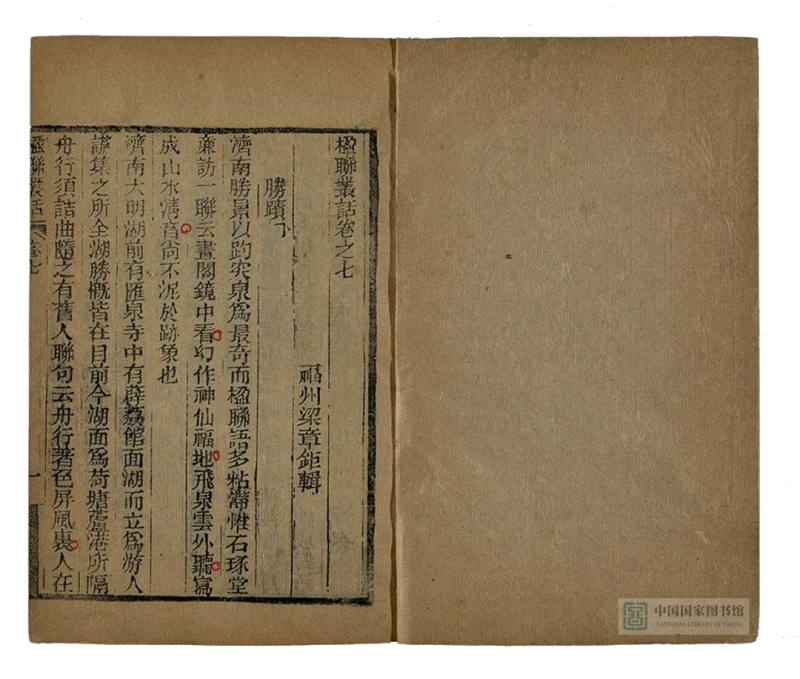 楹聯叢話卷之七
福州梁章鉅輯
勝蹟下
濟南勝景以趵突泉爲最奇而楹聯語多粘滯惟石琢堂
廉訪一聯云畫閣鏡中看幻作神仙福地飛泉雲外聽寫
成山水淸音尙不泥於跡象也
濟南大明湖前有匯泉寺中有薜荔館面湖而立爲游人
讌集之所全湖勝槪皆在目前今湖面爲荷塘蘆港所隔
舟行須詰曲隨之有舊人聯句云舟行著色屏風裏人在
楹聯叢話 卷七 一
中国国家图书馆
NATIONAL LIBRARY OF CHINA